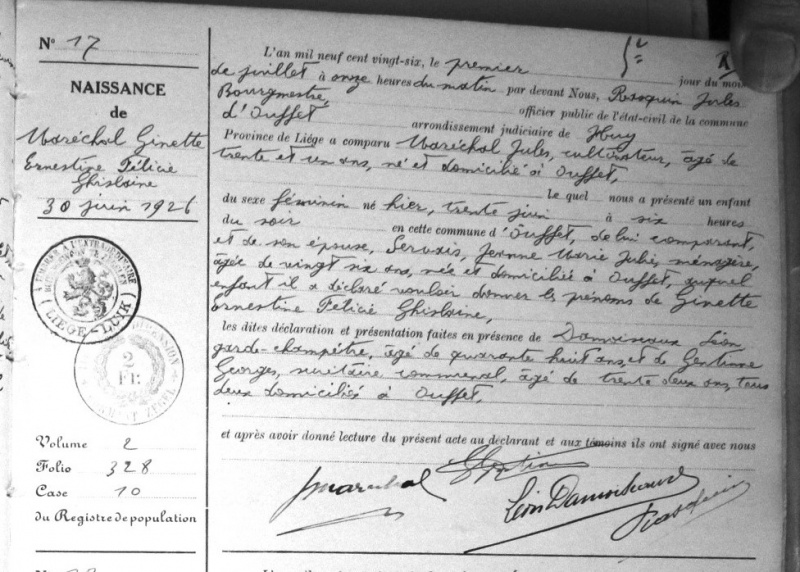 N° 17
NAISSANCE
de
Maréchal Ginette
Ernestine Félicie
Ghislaine
30 juin 1926
TIMBRE A L'EXTRAORDINAIRE
(LIEGE-LUIK)
2
FR.
Volume 2
Folio 328
Case 10
du Registre de population
L'an mil neuf cent vingt-six, le premier jour du mois
de juillet à onze heures du matin par devant Nous, Rasquin Jules
Bourgmestre, officier public de l'état-civil de la commune
d'Ouffet arrondissement judiciaire de Huy
Province de Liége a comparu Maréchal Jules, cultivateur, âgé de
trente et un ans, né et domicilié à Ouffet,
le quel nous a présenté un enfant
du sexe féminin né hier, trente juin à six heures
du soir en cette commune d'Ouffet, de lui comparant,
et de son épouse, Servais, Jeanne Marie Julie, ménagère,
âgée de vingt six ans, née et domiciliée à Ouffet, auquel
enfant il a déclaré vouloir donner les prénoms de Ginette
Ernestine Félicie Ghislaine,
les dites déclaration et présentation faites en présence de Damoiseaux Léon
garde-champêtre, âgé de quarante huit ans, et de
Georges, secrétaire communal, âgé de trente deux ans, tous
deux domiciliés à Ouffet.
et après avoir donné lecture du présent acte au déclarant et aux témoins ils ont signé avec nous
JMaréchal
Léon Damoiseaux
Rasquin